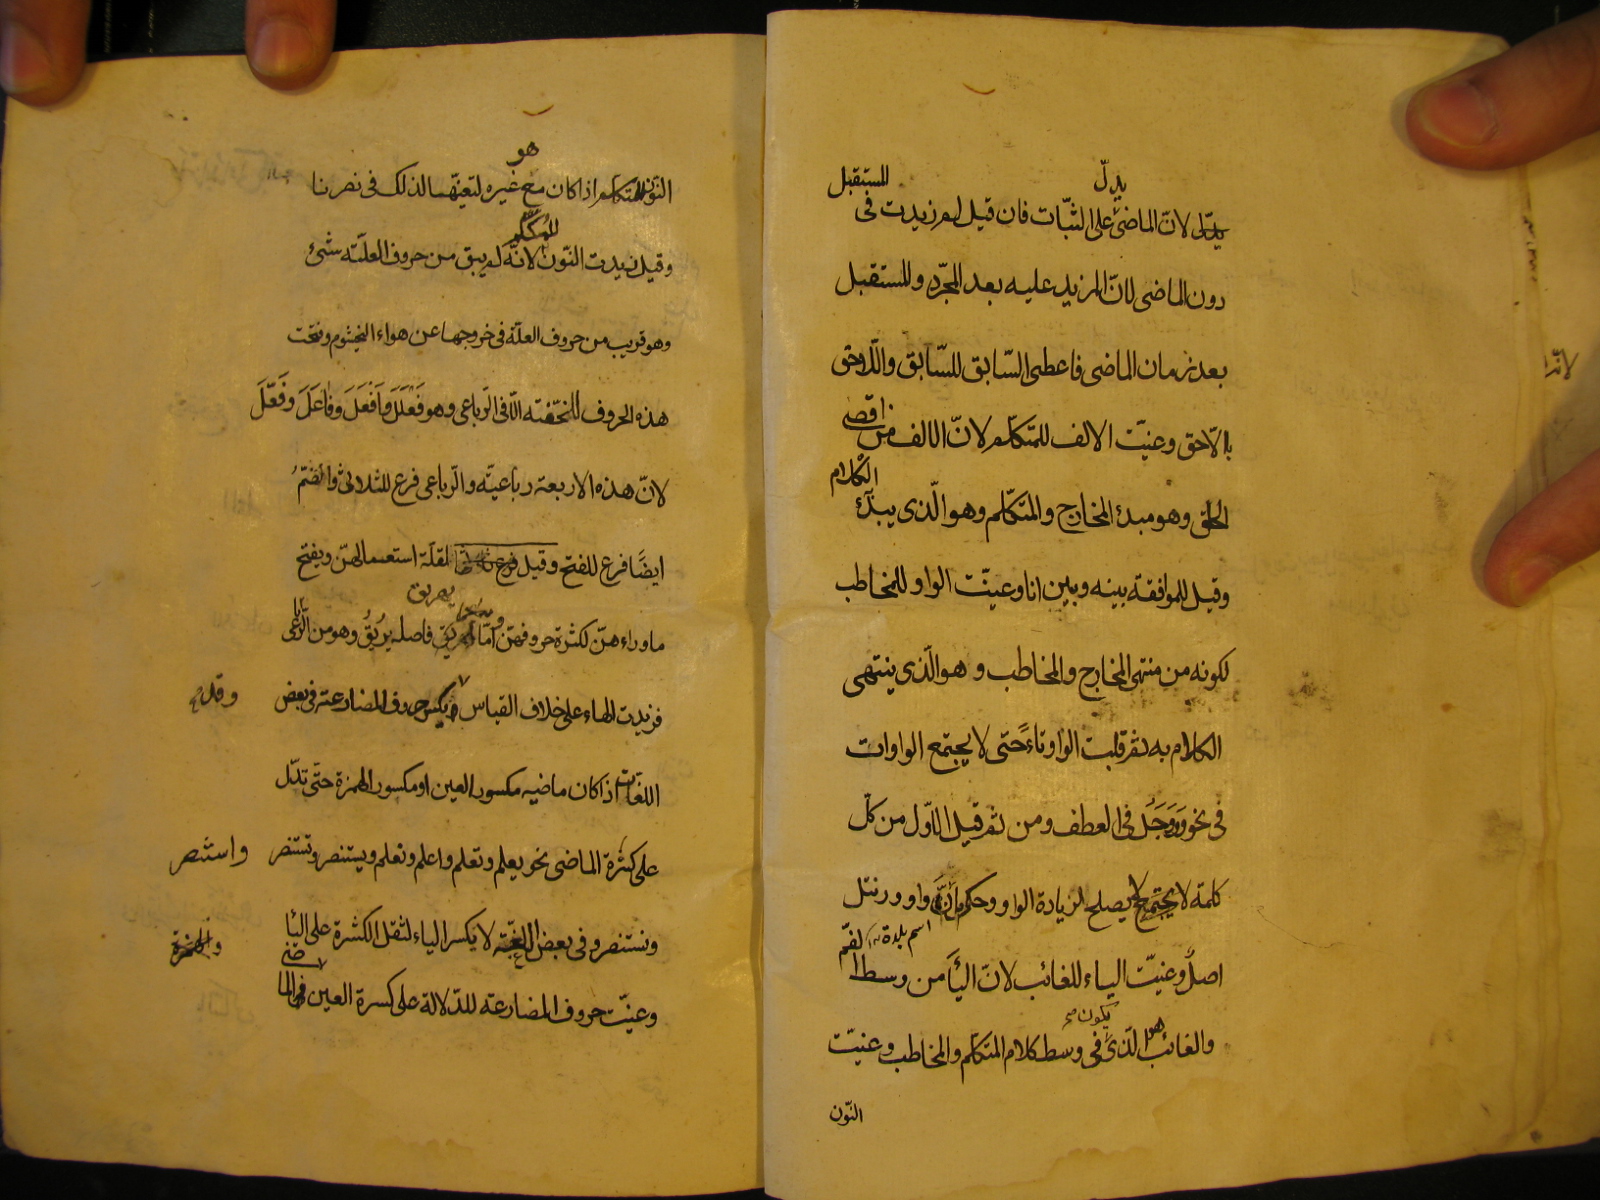 يدلّ
للمستقبل
يدّل لانّ الماضى على الثبّات فان قيل لم زيدت فى
دون الماضى لانّ المزيد عليه بعد المجرّد وللمستقبل
بعد زمان الماضى فاعطى السّابق للسّابق واللّاحق
باللّاحق وعنيّت الالف للمتكلّم لانّ الالف من اقصى
الحلق وهو مبدء المخارج والمتكلّم وهو الّذى يبدّئ الكلام
وقيل للموافقة بينه وبين انا وعينّت الواو للمخاطب
لكونه من منتهى المخارج والمخاطب وهو الّذى ينتهى
الكلام به ثمّ قلبت الواو تاءً حتى لا يجتمع الواوات
فى نحو ووَوَجَل فى العطف ومن ثمّ قيل الاوّل من كلّ
كلمة لا يصلح لزيادة الواو وحكم بانّ واو ورنتل
اسم بلدة
اصل وعنيّت الياء للغائب لانّ اليأ من وسط الفمّ
والغائب هو الّذى يكون فى وسط كلام المتكلّم والمخاطب وعنيّت
النّون
هو
النّون للمتكلم اذا كان مع غيره لتعيّنها لذلك فى نصرنا
للمتكلّم
وقيل زيدت النّون لانّه لم يبق من حروف العلّة شئ
وهو قريب من حروف العلّة فى خروجها عن هواء الخيشوم وفتحت
هذه الحروف للخفّته الّا فى الرّباعى وهو فَعْلَلَ وَاَفْعَلَ وفَاعَلَ وفَعَّلَ
لانّ هذه الاربعة رباعيّه والرّباعى فرع للثلاثى والضّمّ
ايضًا فرع للفتح وقيل لقلّة استعمالهنّ ويفتح
ماوراء هنّ لكثرة حروفهنّ وامّا يهريق فاصله يريقُ وهو من الرّباعى
فزيدت الهاء على خلاف القياس ويكسر حروف المضارعته فى بعض
اللغات اذا كان ماضيه مكسور العين او مكسور الهمزة حتّى تدّل
على كثرة الماضى نحو يعلم وتعلم واعلم ونعلم ويستنصر وتستنصر واستنصر
ونستنصر وفى بعض اللغة لا يكسر الياء لثقل الكثرة على اليأ
وعنيّت حروف المضارعته للدّلالة على كسرة العين فى الماضى